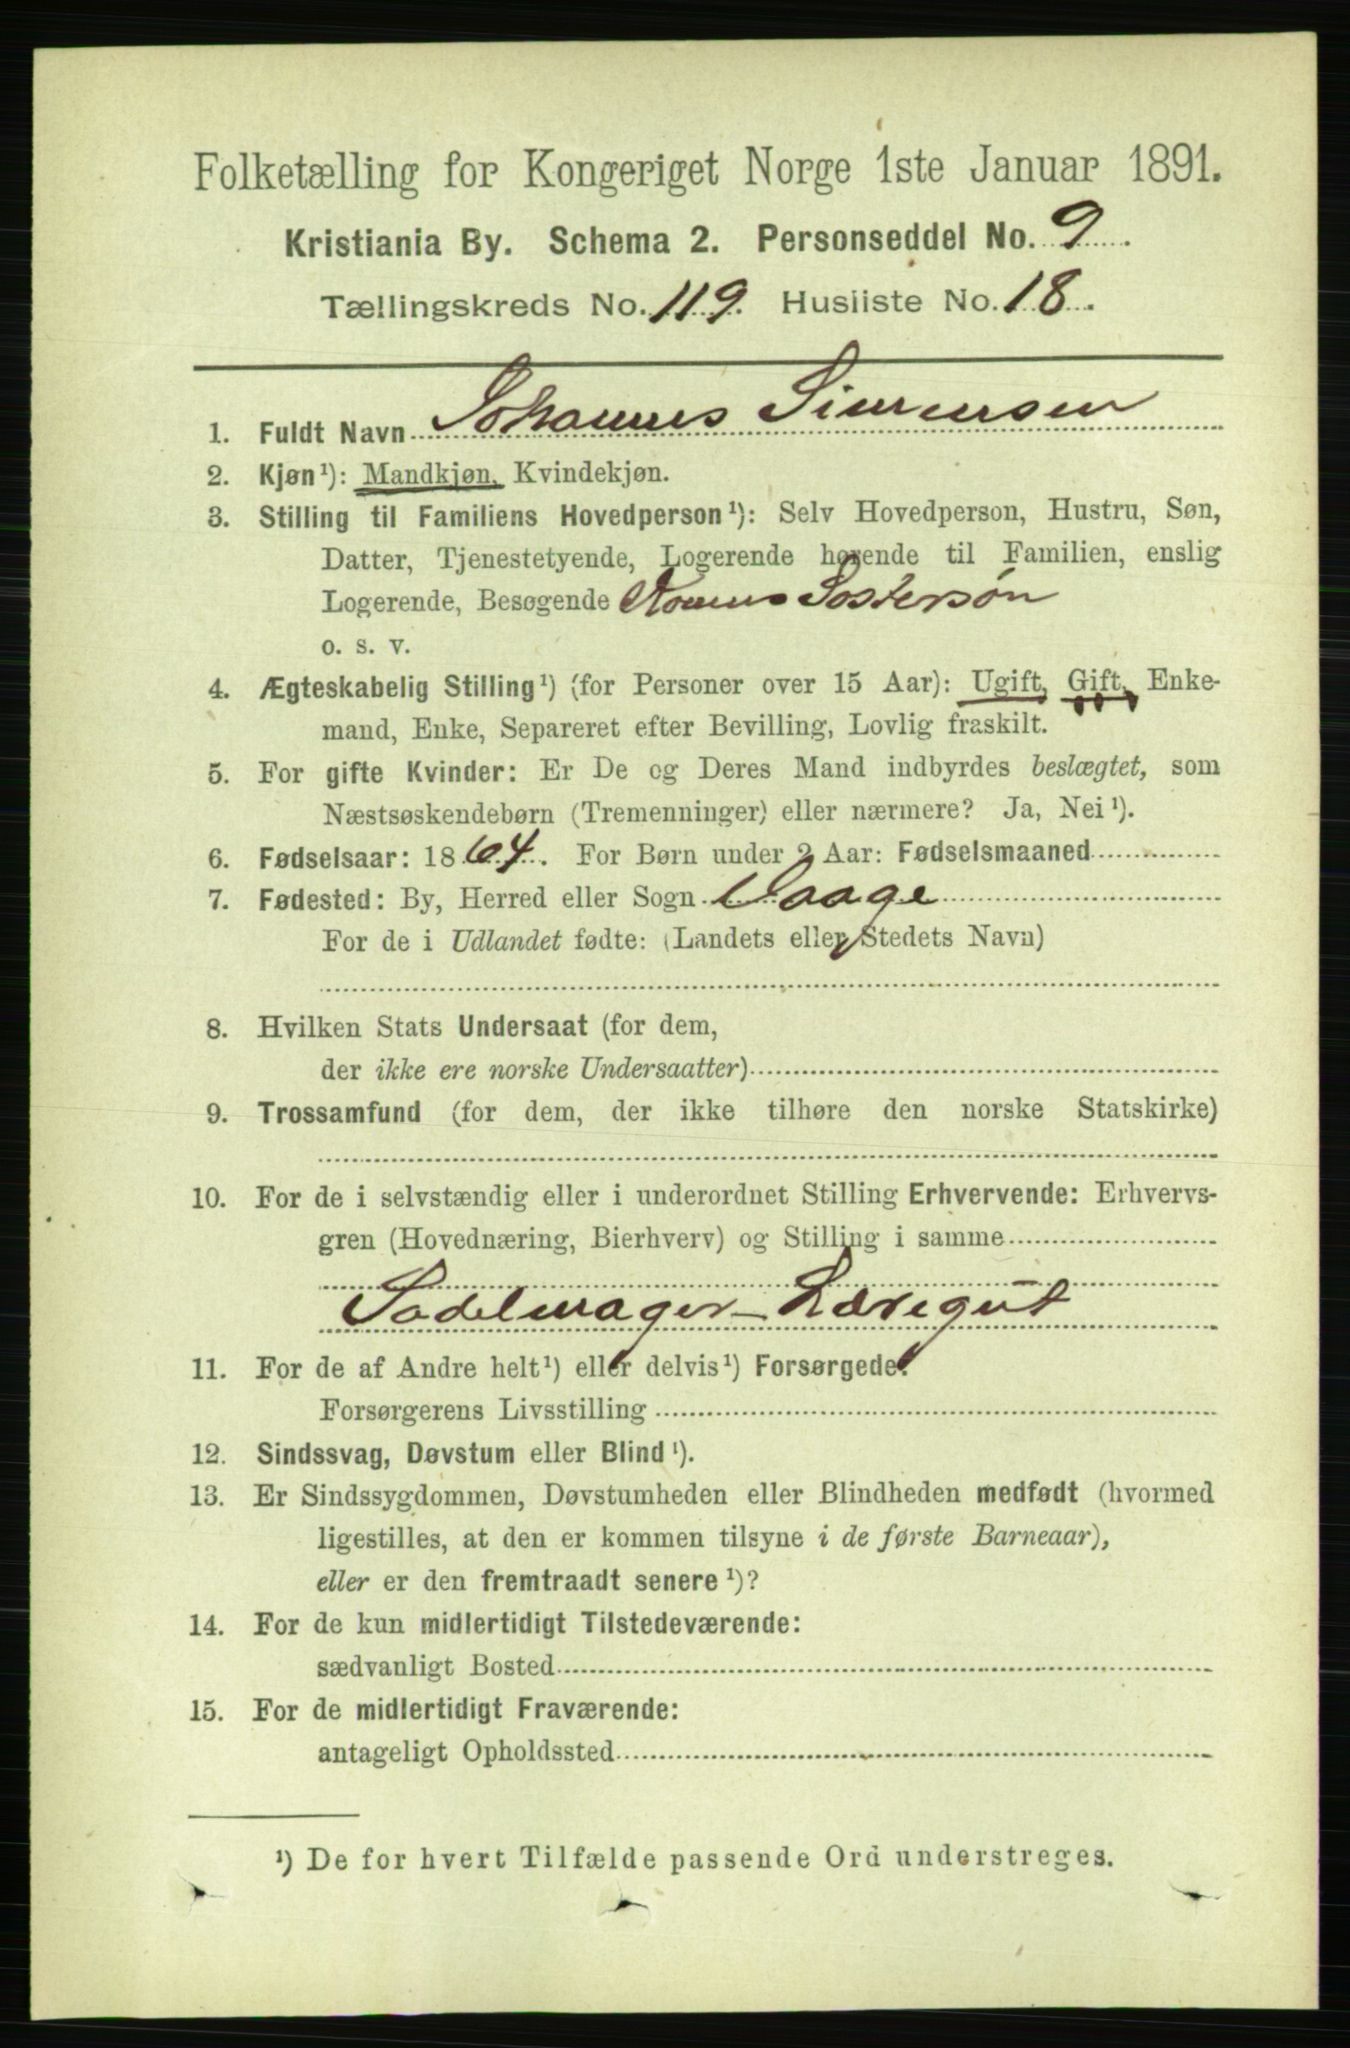 Folketælling for Kongeriget Norge 1ste Januar 1891.
Kristiania By. Schema 2. Personseddel No. 9.
Tællingskreds No. 119. Husliste No. 18.
1. Fuldt Navn Johannes Simensen
2. Kjøn¹): Mandkjøn, Kvindekjøn.
3. Stilling til Familiens Hovedperson¹): Selv Hovedperson, Hustru, Søn,
Datter, Tjenestetyende, Logerende hørende til Familien, enslig
Logerende, Besøgende Konens Søstersøn
o. s. v.
4. Ægteskabelig Stilling¹) (for Personer over 15 Aar): Ugift, Gift, Enke-
mand, Enke, Separeret efter Bevilling, Lovlig fraskilt.
5. For gifte Kvinder: Er De og Deres Mand indbyrdes beslægtet, som
Næstsøskendebørn (Tremenninger) eller nærmere? Ja, Nei¹).
6. Fødselsaar: 1864. For Børn under 2 Aar: Fødselsmaaned
7. Fødested: By, Herred eller Sogn Vaage
For de i Udlandet fødte: (Landets eller Stedets Navn)
8. Hvilken Stats Undersaat (for dem,
der ikke ere norske Undersaatter)
9. Trossamfund (for dem, der ikke tilhøre den norske Statskirke)
10. For de i selvstændig eller i underordnet Stilling Erhvervende: Erhvervs-
gren (Hovednæring, Bierhverv) og Stilling i samme
Sadelmager-Læregut
11. For de af Andre helt¹) eller delvis¹) Forsørgede:
Forsørgerens Livsstilling
12. Sindssvag, Døvstum eller Blind¹).
13. Er Sindssygdommen, Døvstumheden eller Blindheden medfødt (hvormed
ligestilles, at den er kommen tilsyne i de første Barneaar),
eller er den fremtraadt senere¹)?
14. For de kun midlertidigt Tilstedeværende:
sædvanligt Bosted
15. For de midlertidigt Fraværende:
antageligt Opholdssted
¹) De for hvert Tilfælde passende Ord understreges.